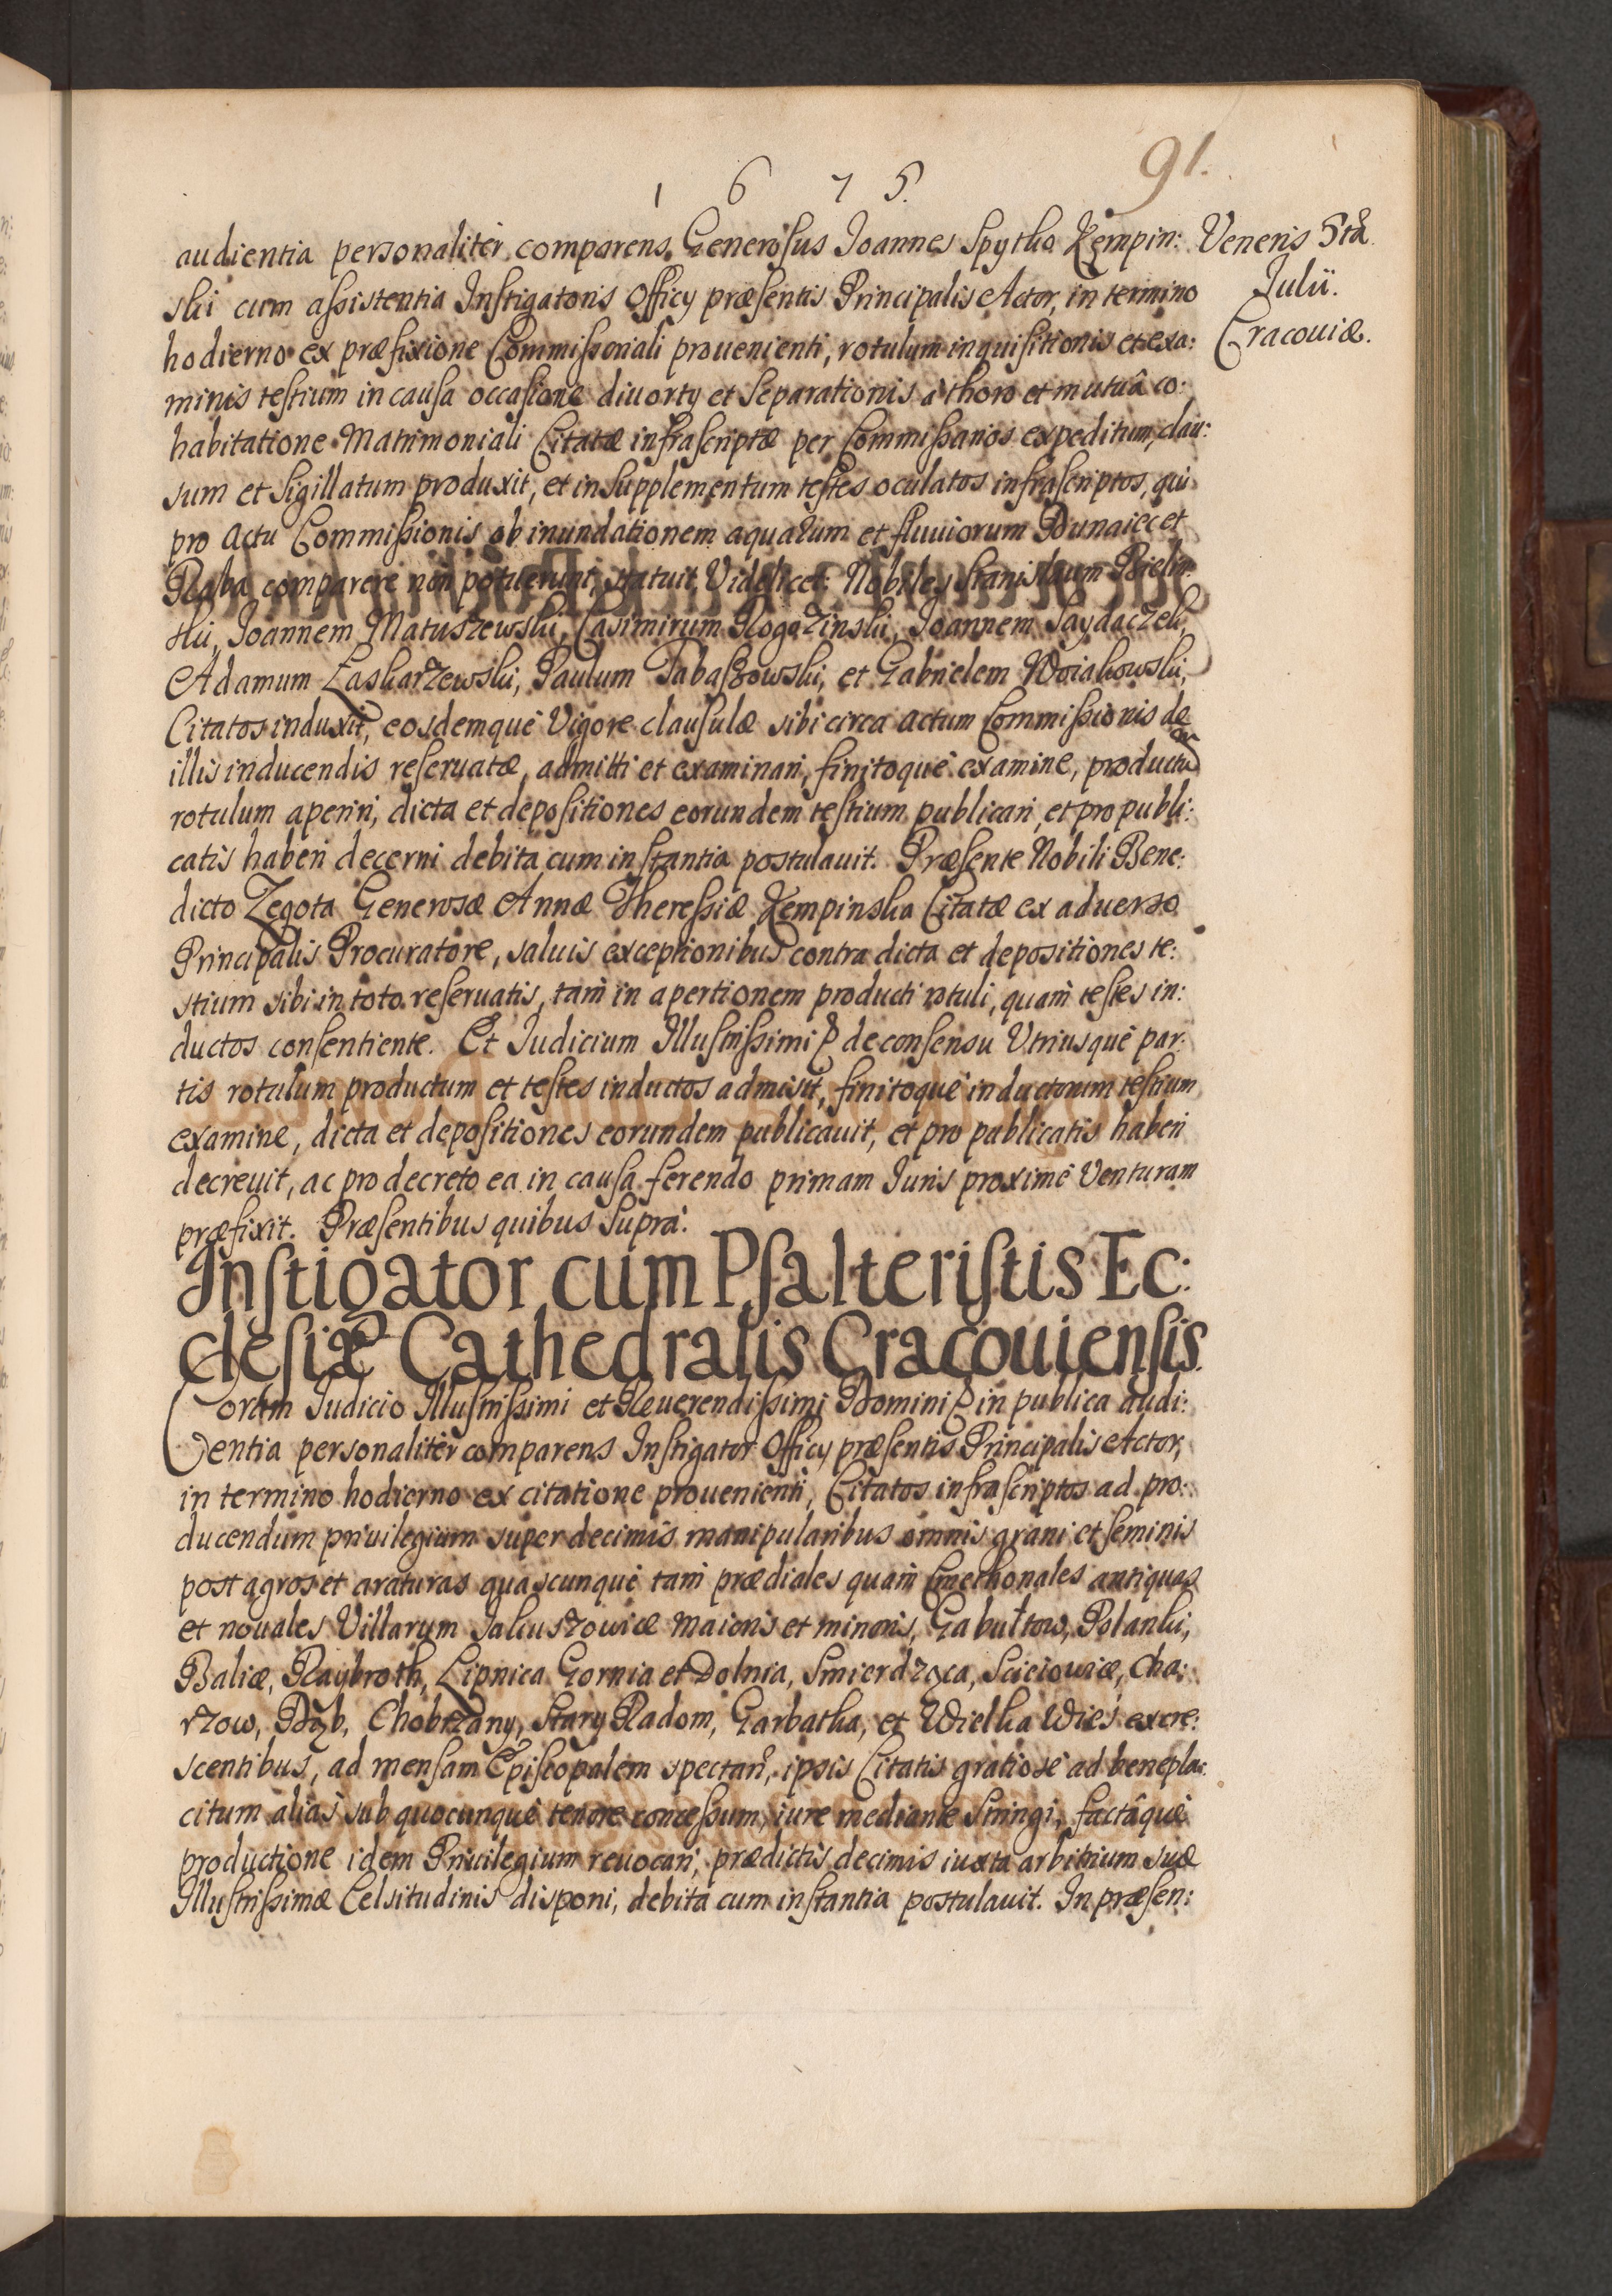 91.
1 6 7 5.
Veneris 5ta
Julii.
Cracouiæ.
audientia personalitèr comparens Generosus Joannes Spytko Kempin:
ski cum assistentia Instigatoris Officy præsentis Principalis Actor, in termino
hodierno ex præfixione Commissoriali prouenienti, rotulum inquisitionis et exa:
minis testium in causa occasione diuorty et separationis à thoro et mutuâ co:
habitatione Matrimoniali Citatæ infrascriptæ per Commissarios expeditum, clau:
sum et sigillatum produxit, et in supplementum testes oculatos infrascriptos, qui
pro actu Commissionis ob inundationem aquarum et fluuiorum Dunaiec et
Raba comparere non potuerunt, statuit, Videlicet: Nobiles Stanislaum Bielin:
ski, Joannem Matuszewski, Casimirum Rogozinski, Joannem Saydaczek,
Adamum Laskarzewski, Paulum Tabaszowski, et Gabrielem Woiakowski,
Citatos induxit, eosdemquè Vigore clausulæ sibi circa actum Commissionis de
illis inducendis reseruatæ, admitti et examinari, finitoquè examine, productum
rotulum aperiri, dicta et depositiones eorundem testium publicari, et pro publi:
catis haberi decerni debita cum instantia postulauit. Præsente Nobili Bene:
dicto Zegota Generosæ Annæ Theressiæ Kempinska Citatæ ex aduerso
Principalis Procuratore, saluis exceptionibus contra dicta et depositiones te:
stium sibi in toto reseruatis, tam in apertionem producti rotuli, quam testes in:
ductos consentiente. Et Judicium Illustrissimi de consensu Utriusquè par:
tis rotulum productum et testes inductos admisit, finitoquè inductorum testium
examine, dicta et depositiones eorundem publicauit, et pro publicatis haberi
decreuit, ac pro decreto ea in causa ferendo primam Juris proximè Venturam
præfixit. Præsentibus quibus supra.
Instigator cum Psalteristis Ec:
clesiæ Cathedralis Cracouiensis.
Coram Judicio Illustrissimi et Reuerendissimi Domini in publica audi:
entia personalitèr comparens Instigator Officy præsentis Principalis Actor,
in termino hodierno ex citatione prouenienti, Citatos infrascriptos ad pro:
ducendum priuilegium super decimis manipularibus omnis grani et seminis
post agros et araturas quascunquè tam prædiales quam Cmethonales antiquas
et nouales Villarum Jakuszowice maioris et minoris, Gabułtow, Polanki,
Baliæ, Raybroth, Lipnica Gornia et Dolnia, Smierdząca, Sciciowice, Cha:
rzow, Dąb, Chobrzany, Stary Radom, Garbatka, et Wielka Wies excre:
scentibus, ad mensam Episcopalem spectan, ipsis Citatis gratiosè ad benepla:
citum aliàs sub quocunquè tenore concessum, iure mediante stringi, factâquè
productione idem Priuilegium reuocari, prædictis decimis iuxta arbitrium suæ
Illustrissimæ Celsitudinis disponi, debita cum instantia postulauit. In præsen: